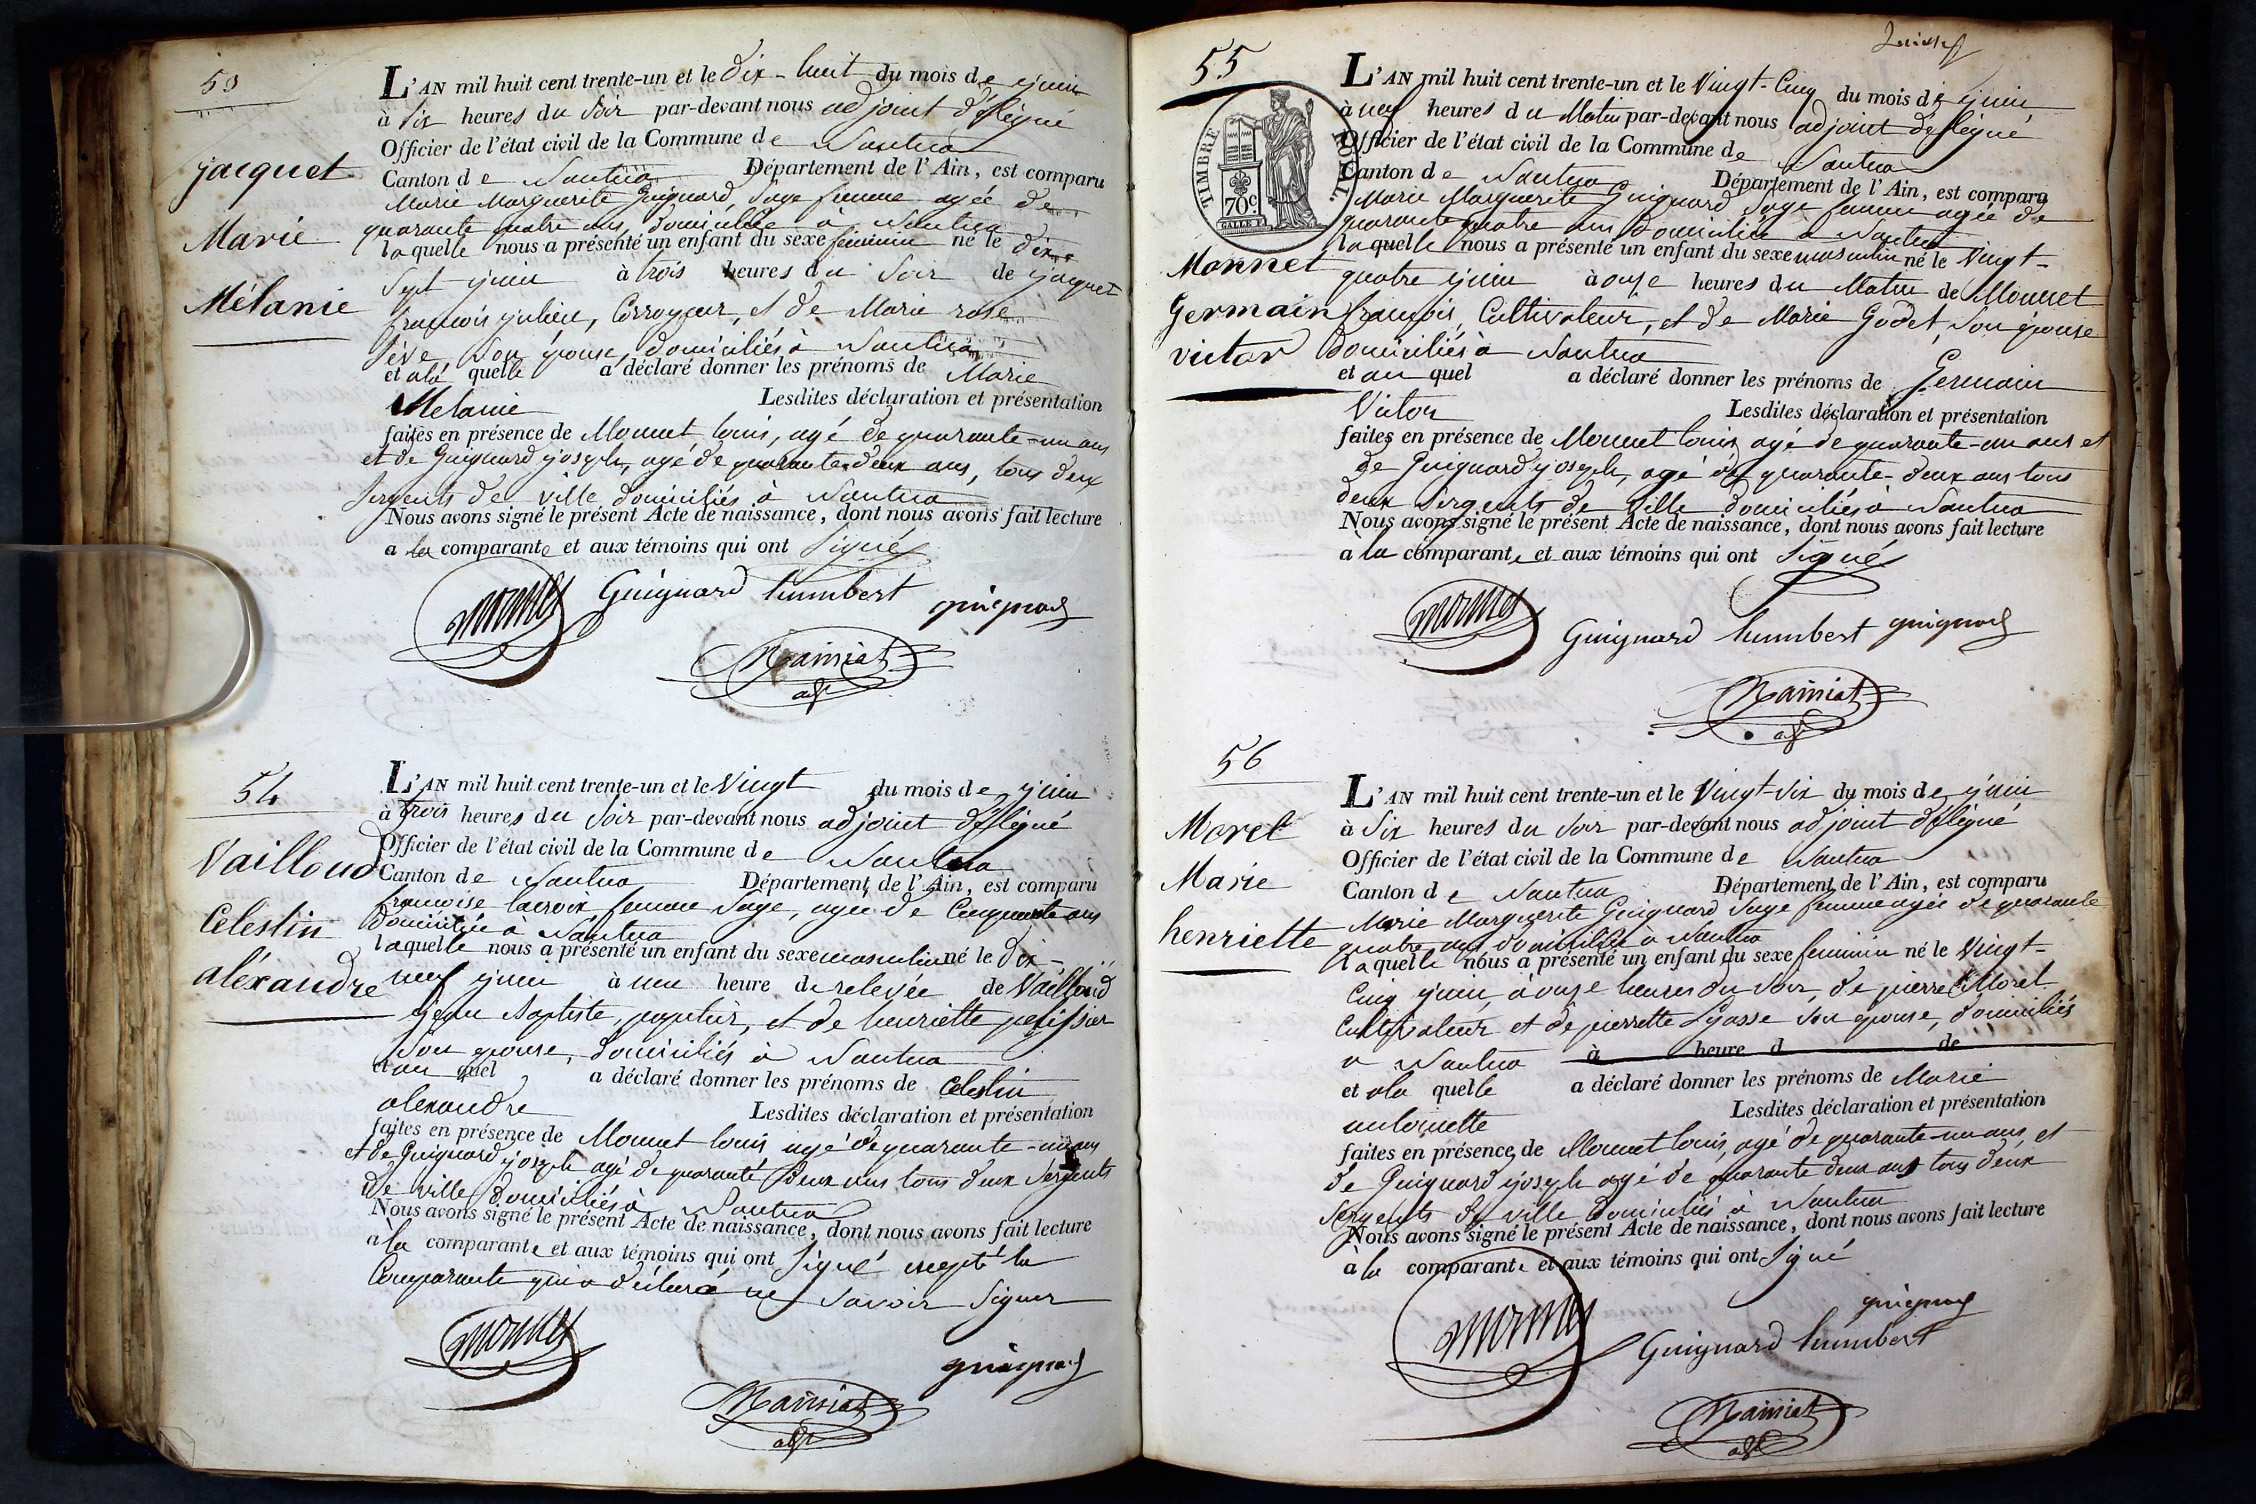 53
jacquet
Marie
Mélanie
L'AN mil huit cent trente-un et le dix-huit du mois de juin
à six heures du soir par-devant nous adjoint délégué
Officier de l'état civil de la Commune de Nantua
Canton de Nantua Département de l'Ain, est comparu
Marie Marguerite Guignard, sage femme agée de
quarante quatre ans, domiciliée à Nantua
laquelle nous a présenté un enfant du sexe féminin né le dix-
sept juin à trois heures du soir de jacquet
françois julien, Corroyeur, et de Marie rose
son épouse, domiciliés à Nantua
et à la quelle a déclaré donner les prénoms de Marie
Melanie Lesdites déclaration et présentation
faites en présence de Monnet louis, agé de quarante-un ans
et de Guignard joseph, agé de quarante deux ans, tous deux
sergents de ville domiciliés à Nantua
Nous avons signé le présent Acte de naissance, dont nous avons fait lecture
a la comparante et aux témoins qui ont signé
monnet Guignard humbert guignard
adjt
54
Vailloud
Celestin
aléxandre
L'AN mil huit cent trente-un et le Vingt du mois de juin
à trois heures du soir par-devant nous adjoint délégué
Officier de l'état civil de la Commune de Nantua
Canton de Nantua Département de l'Ain, est comparu
françoise lacroix femme sage, agée de Cinquante ans
domiciliée à Nantua
laquelle nous a présenté un enfant du sexe masculin né le dix-
neuf juin à une heure de relevée de Vailloud
jean Baptiste, papetier, et de henriette pelissier
son epouse, domiciliés à Nantua
et au quel a déclaré donner les prénoms de Celestin
alexandre Lesdites déclaration et présentation
faites en présence de Monnet louis agé de quarante-un ans
et de Guignard joseph agé de quarante deux ans tous deux sergents
de ville domiciliés à Nantua
Nous avons signé le présent Acte de naissance, dont nous avons fait lecture
à la comparante et aux témoins qui ont signé excepté la
Comparante qui a déclaré ne savoir signer
monnet guignard
adjt
55
TIMBRE ROYAL
70c
Monnet
Germain
victor
L'AN mil huit cent trente-un et le Vingt-Cinq du mois de juin
à neuf heures du Matin par-devant nous adjoint délégué
Officier de l'état civil de la Commune de Nantua
Canton de Nantua Département de l'Ain, est comparu
Marie Marguerite Guignard sage femme agée de
quarante quatre ans domiciliée à Nantua
laquelle nous a présenté un enfant du sexe masculin né le Vingt-
quatre juin à onze heures du Matin de Monnet
françois, Cultivateur, et de Marie Godet, son épouse
domiciliés à Nantua
et au quel a déclaré donner les prénoms de Germain
Victor Lesdites déclaration et présentation
faites en présence de Monnet louis agé de quarante-un ans et
de Guignard joseph, agé de quarante-deux ans tous
deux sergents de ville domiciliés à Nantua
Nous avons signé le présent Acte de naissance, dont nous avons fait lecture
à la comparante et aux témoins qui ont signé
monnet Guignard humbert guignard
adjt
56
Moret
Marie
henriette
L'AN mil huit cent trente-un et le Vingt-six du mois de juin
à six heures du soir par-devant nous adjoint délégué
Officier de l'état civil de la Commune de Nantua
Canton de Nantua Département de l'Ain, est comparu
Marie Marguerite Guignard sage femme agée de quarante
quatre ans domiciliée à Nantua
laquelle nous a présenté un enfant du sexe féminin né le Vingt-
Cinq juin, à onze heures du soir, de pierre Moret
Cultivateur et de pierrette son epouse, domiciliés
a Nantua à heure d de
et à la quelle a déclaré donner les prénoms de Marie
antoinette Lesdites déclaration et présentation
faites en présence de Monnet louis, agé de quarante-un ans, et
de Guignard joseph agé de quarante deux ans tous deux
sergents de ville domiciliés à Nantua
Nous avons signé le présent Acte de naissance, dont nous avons fait lecture
à la comparante et aux témoins qui ont signé
monnet guignard
Guignard humbert
adjt